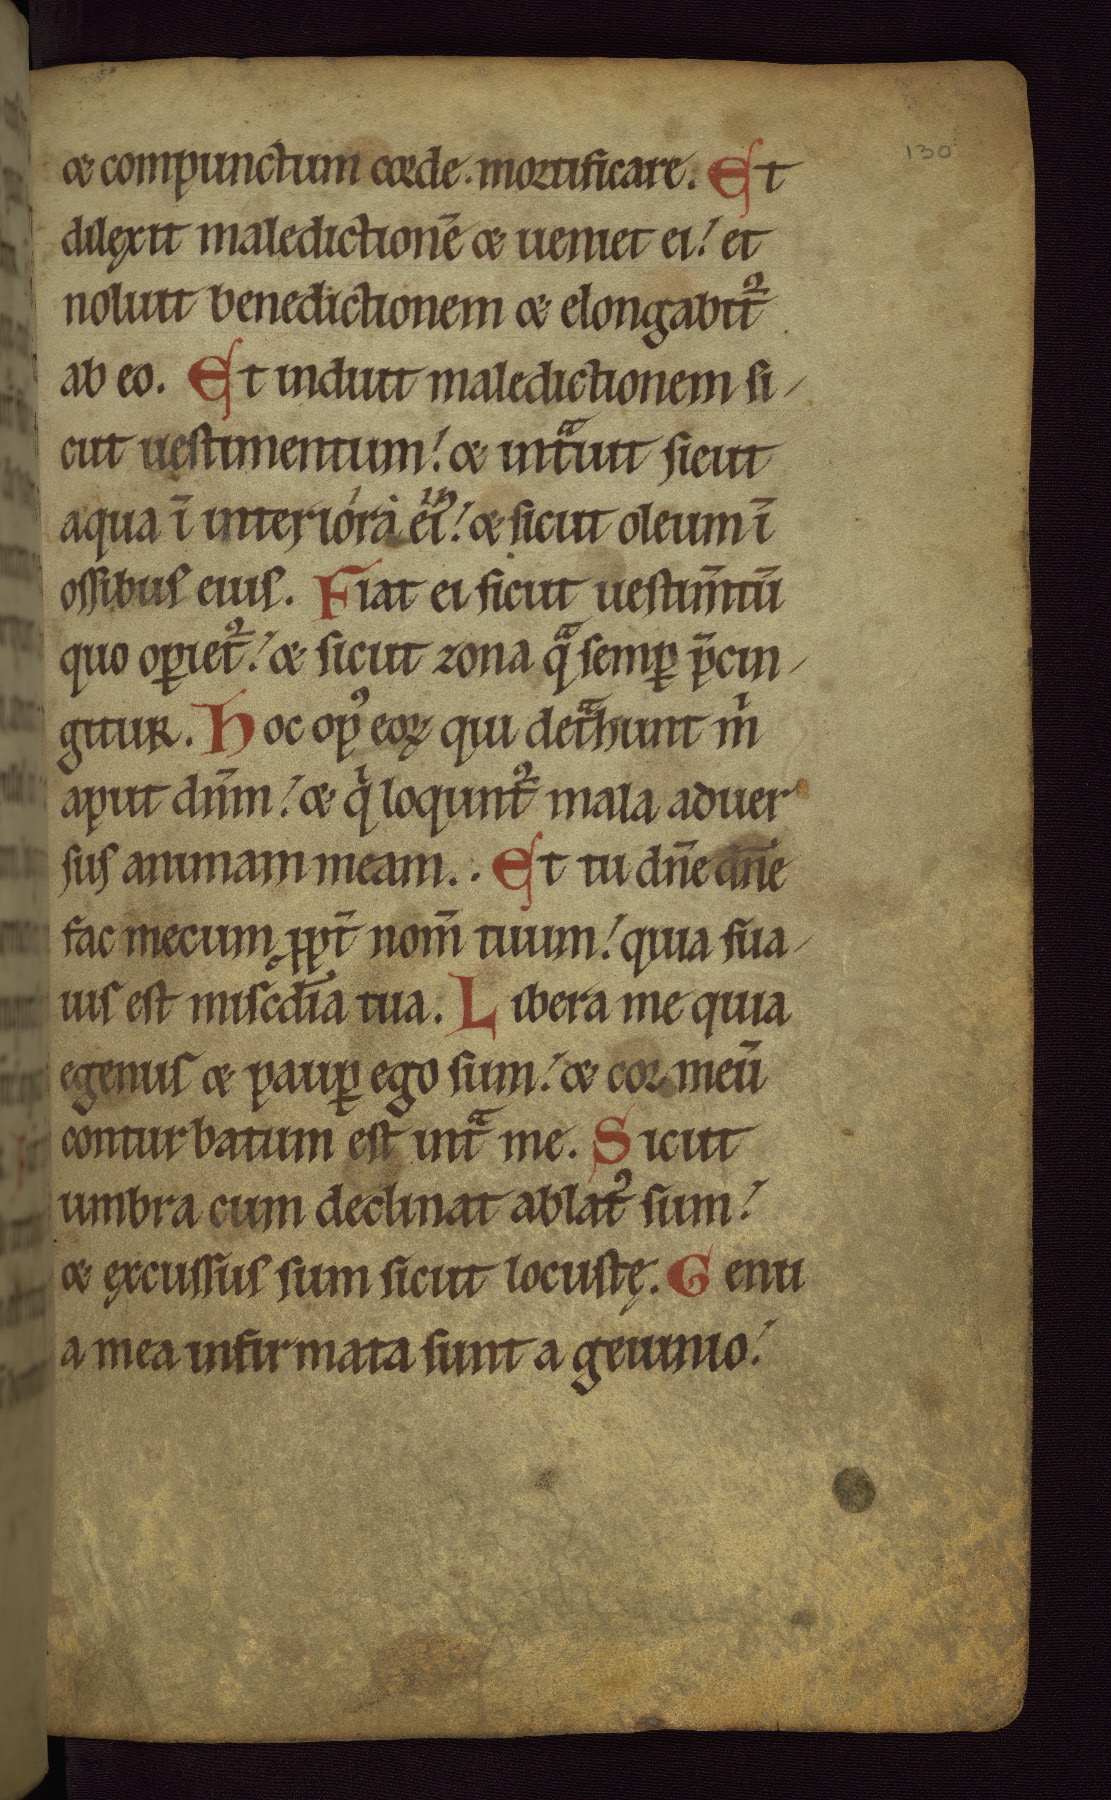 130
& compunctum corde. mortificare. Et
dilęxit maledictionē & ueniet ei! et
noluit benedictionem & elongabit̄ᷣ
ab eo. Et induit maledictionem si-
cut uestimentum! & int̄ᵃuit sicut
aqua ī interiora ei᾽! & sicut oleum ī
ossibus eius. Fiat ei sicut uestim̄tū
quo oꝑiet̄ᷣ! & sicut zona qᵃ semꝑ p̄cin-
gitur. Hoc op᾽ eoꝝ qui detᵃhunt m̍
aput dn̄m! & qⁱ loqunt̄ᷣ mala aduer
sus animam meam.. Et tu dn̄e dn̄e
fac mecum ꝓpt̄ nom̄ tuum! quia sua-
uis est misc̄dia tua. Libera me quia
egenus & pauꝑ ego sum! & cor meū
conturbatum est int̄ᵃ me. Sicut
umbra cum declinat ablat᾽ sum!
& ęxcussus sum sicut locustę. Genu
a mea infirmata sunt a geiunio!